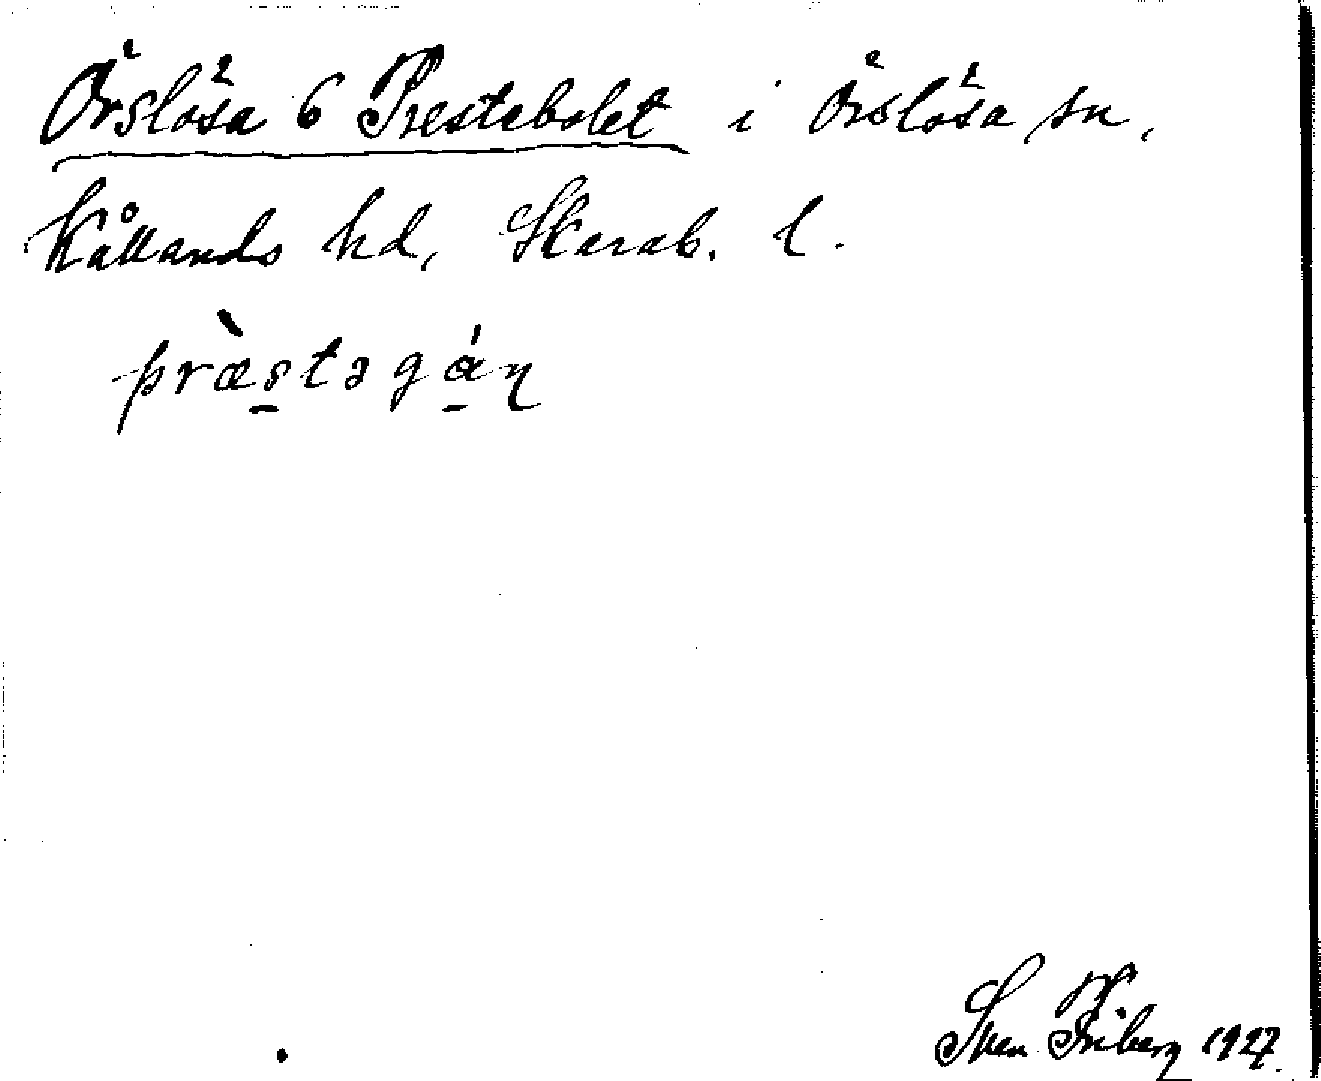 Örslösa 6 Prestebolet i Örslösa sn,
Kållands hd, Skarab. l.
præ̀stəgáɳ
Sven Friberg 1927.